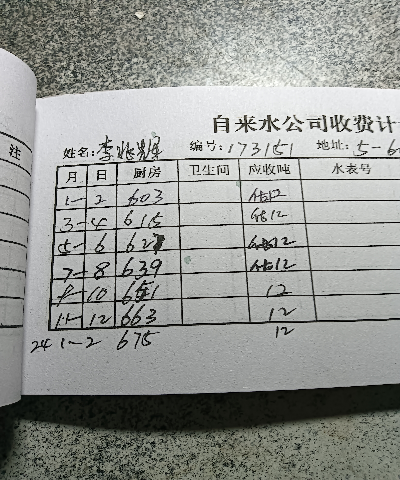 注
自来水公司收费计
姓名: 李 编号: 173151 地址: 5-6
月 日 厨房 卫生间 应收吨 水表号
1-2 603 估12
3-4 615 估12
5-6 627 估12
7-8 639 估12
9-10 651 12
11-12 663 12
24 1-2 675 12